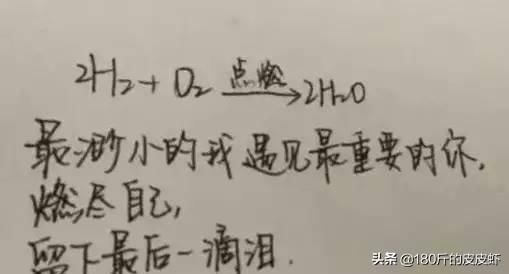 2H₂+O₂ 点燃→ 2H₂O
最渺小的我遇见最重要的你,
燃尽自己,
留下最后一滴泪.
头条 @180斤的皮皮虾